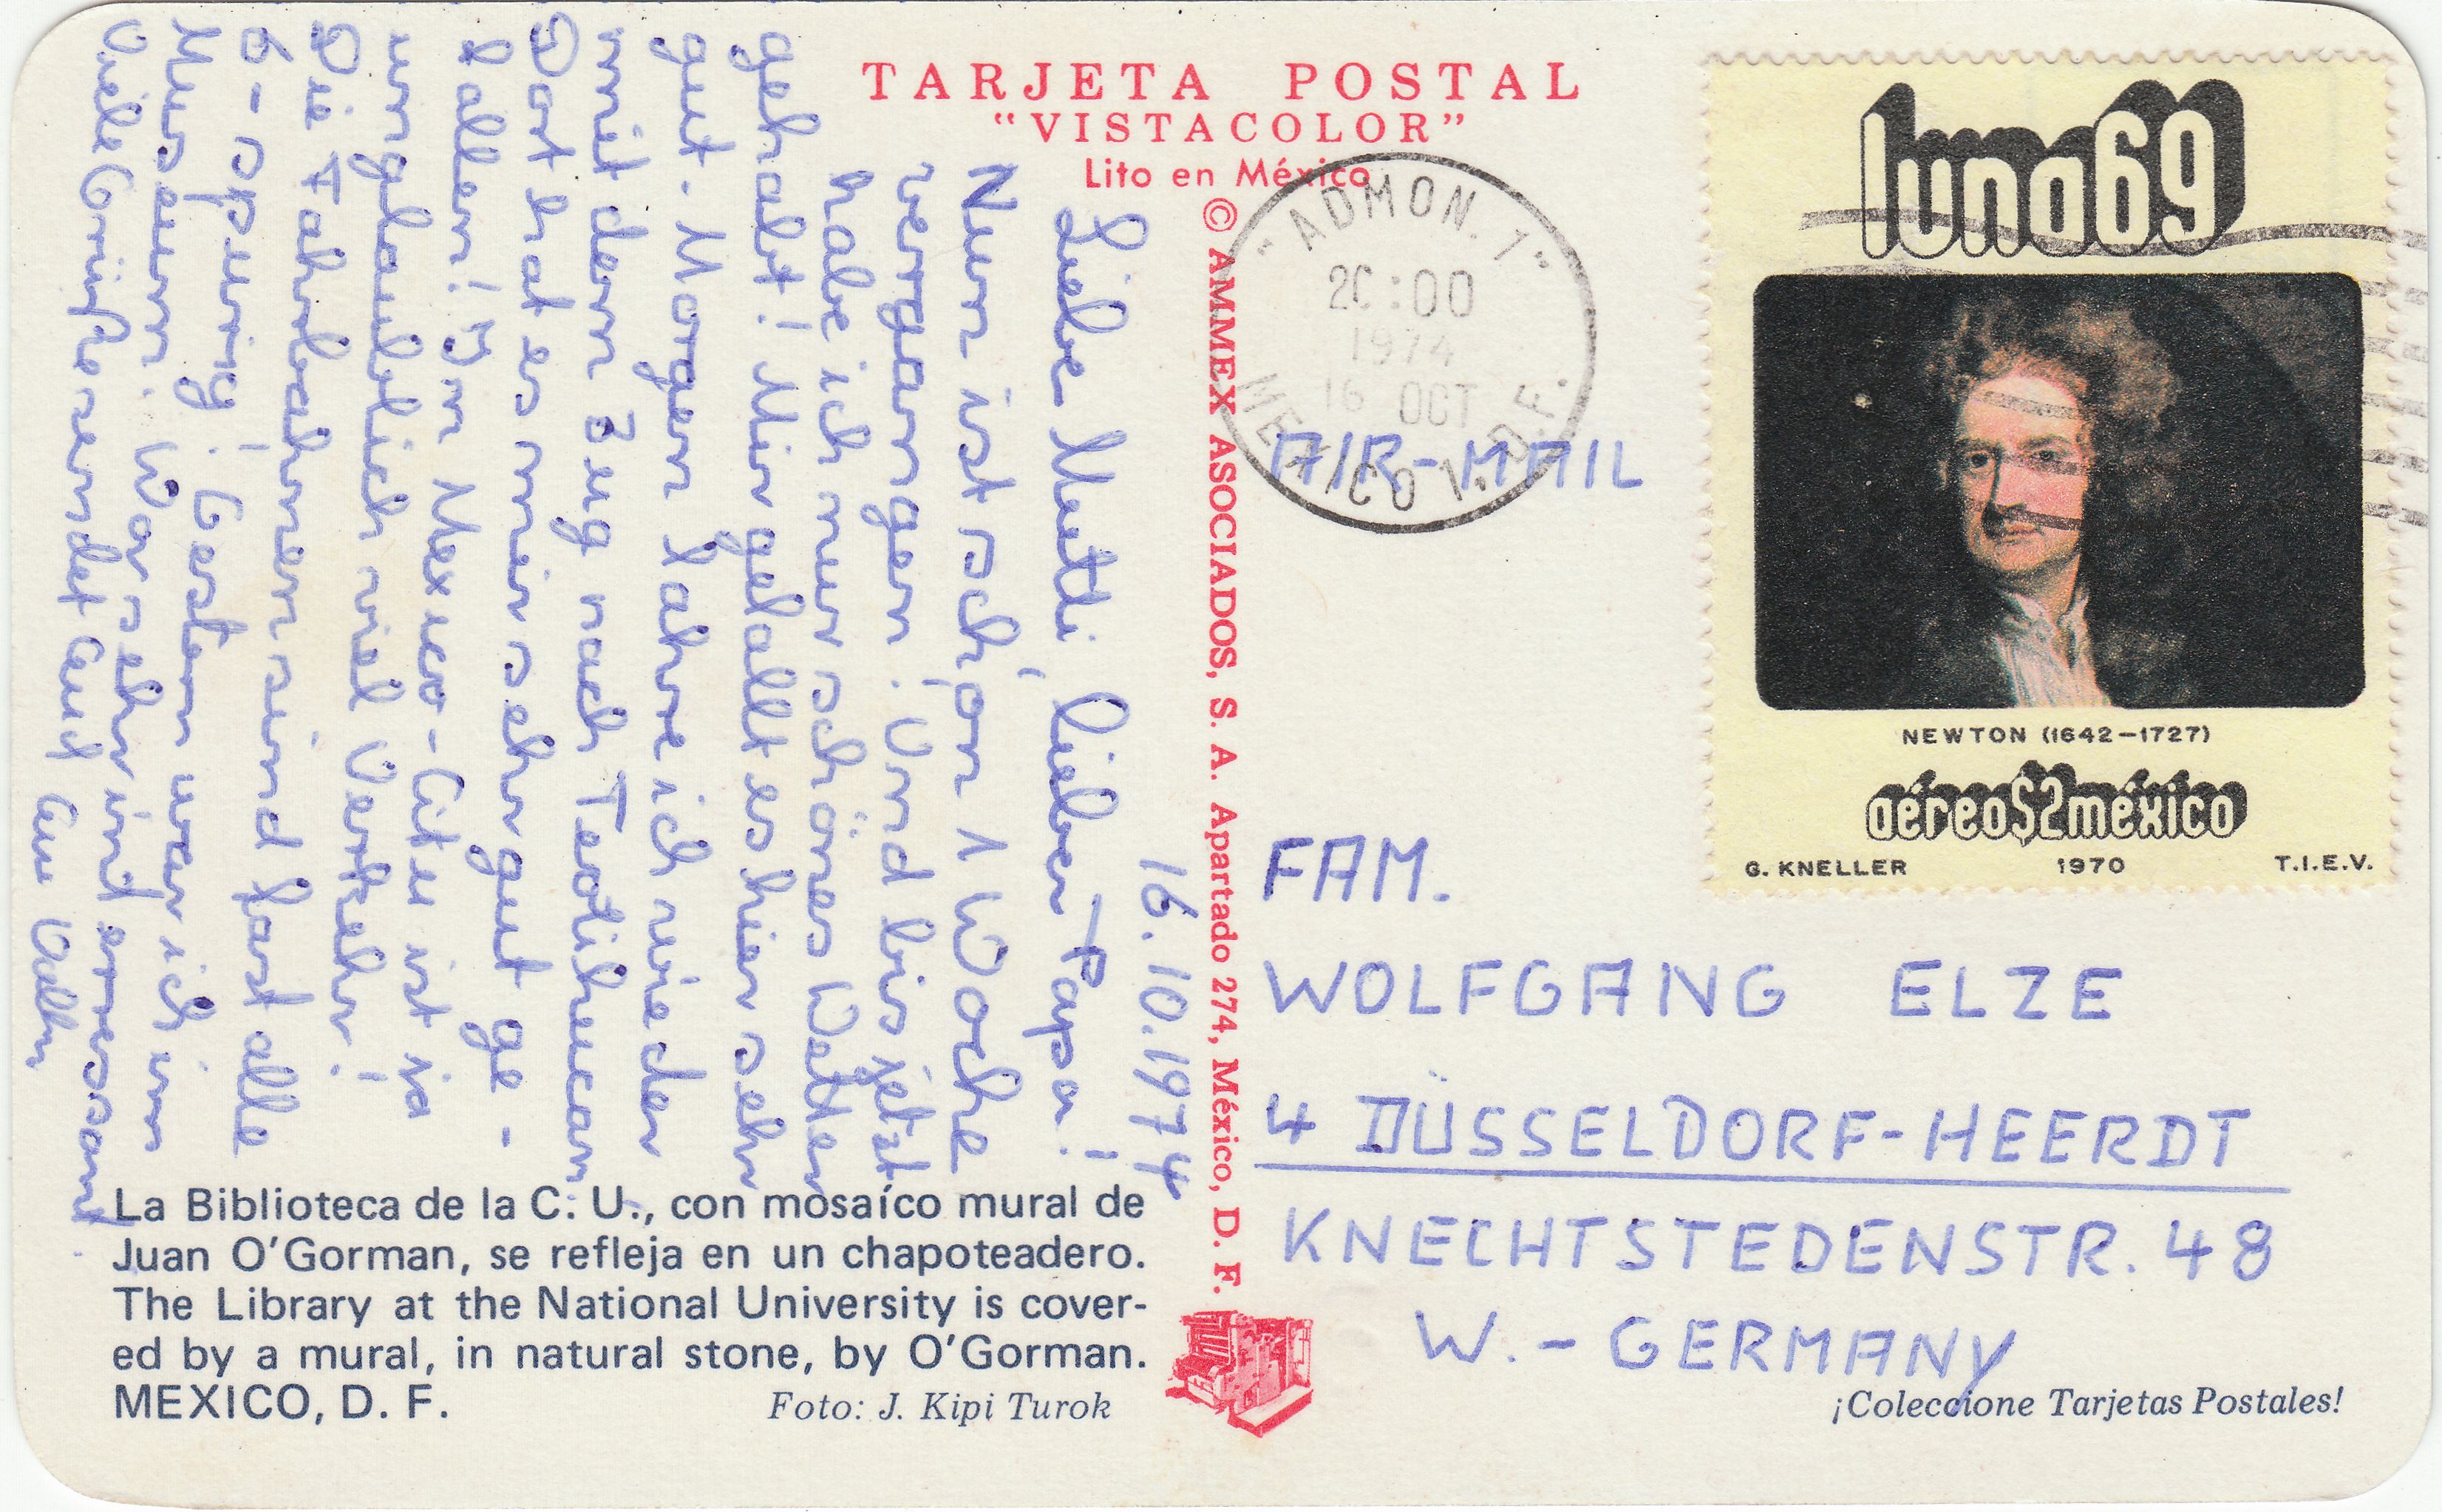 TARJETA POSTAL
"VISTACOLOR"
Lito en México
© AMMEX ASOCIADOS, S. A. Apartado 274, México, D. F.
16.10.1974
Liebe Mutti, lieber Papa!
Nun ist schon 1 Woche
vergangen. Und bis jetzt
habe ich nur schönes Wetter
gehabt! Mir gefällt es hier sehr
gut. Morgen fahre ich wieder
mit dem Zug nach Teotihuacan.
Dort hat es mir sehr gut ge-
fallen! In Mexico-City ist ja
unglaublich viel Verkehr!
Die Fahrbahnen sind fast alle
6-spurig! Gestern war ich im
Museum. War sehr interessant.
Viele Grüße sendet Euch Eure
La Biblioteca de la C. U., con mosaíco mural de
Juan O'Gorman, se refleja en un chapoteadero.
The Library at the National University is cover-
ed by a mural, in natural stone, by O'Gorman.
MEXICO, D. F.
Foto: J. Kipi Turok
"ADMON. 1"
20:00
1974
16 OCT
MEXICO 1. D.F.
AIR-MAIL
luna69
NEWTON (1642-1727)
aéreo$2méxico
G. KNELLER 1970 T.I.E.V.
FAM.
WOLFGANG ELZE
4 DÜSSELDORF-HEERDT
KNECHTSTEDENSTR. 48
W.-GERMANY
¡Coleccione Tarjetas Postales!